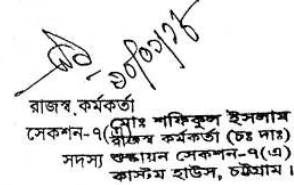 রাজস্ব কর্মকর্তা
মোঃ শফিকুল ইসলাম
সেকশন-৭(এ)
রাজস্ব কর্মকর্তা (চঃ দাঃ)
সদস্য শুল্কায়ন সেকশন-৭(এ)
কাস্টম হাউস, চট্টগ্রাম।